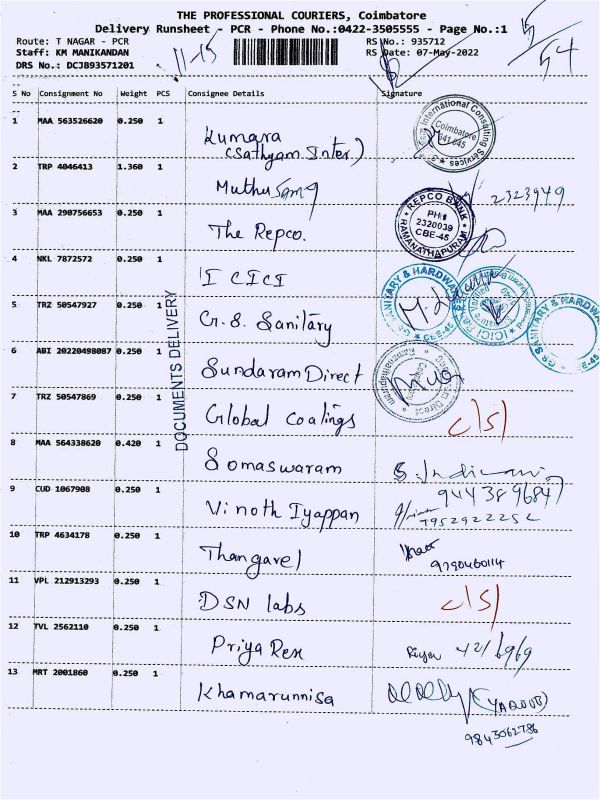 THE PROFESSIONAL COURIERS, Coimbatore
Delivery Runsheet - PCR - Phone No.:0422-3505555 - Page No.:1
Route: T NAGAR - PCR
RS No.: 935712
Staff: KM MANIKANDAN
RS Date: 07-May-2022
DRS No.: DCJB93571201
11-15
5/54
S No Consignment No Weight PCS Consignee Details Signature
1 MAA 563526620 0.250 1 Kumara
(Sathyam Inter)
International Consulting Services
Coimbatore
641 045
2 TRP 4046413 1.360 1 Muthusamy
2323949
3 MAA 290756653 0.250 1 The Repco.
REPCO BANK
PH:
2320039
CBE-45
RAMANATHAPURAM
4 NKL 7872572 0.250 1 ICICI
5 TRZ 50547927 0.250 1 G.S. Sanitary
GS SANITARY & HARDWARE
CBE-45
ICICI
GS SANITARY & HARDWARE
CBE-45
6 ABI 20220498087 0.250 1 Sundaram Direct
DOCUMENTS DELIVERY
7 TRZ 50547869 0.250 1 Global Coatings
c/s/
8 MAA 564338620 0.420 1 Somaswaram
9443896847
9 CUD 1067908 0.250 1 Vinoth Iyappan
7952922252
10 TRP 4634178 0.250 1 Thangavel
9790460114
11 VPL 212913293 0.250 1 DSN labs
c/s/
12 TVL 2562110 0.250 1 Priya Rex
42/6969
13 MRT 2001860 0.250 1 Khamarunnisa
(YAQOOB)
9843062786